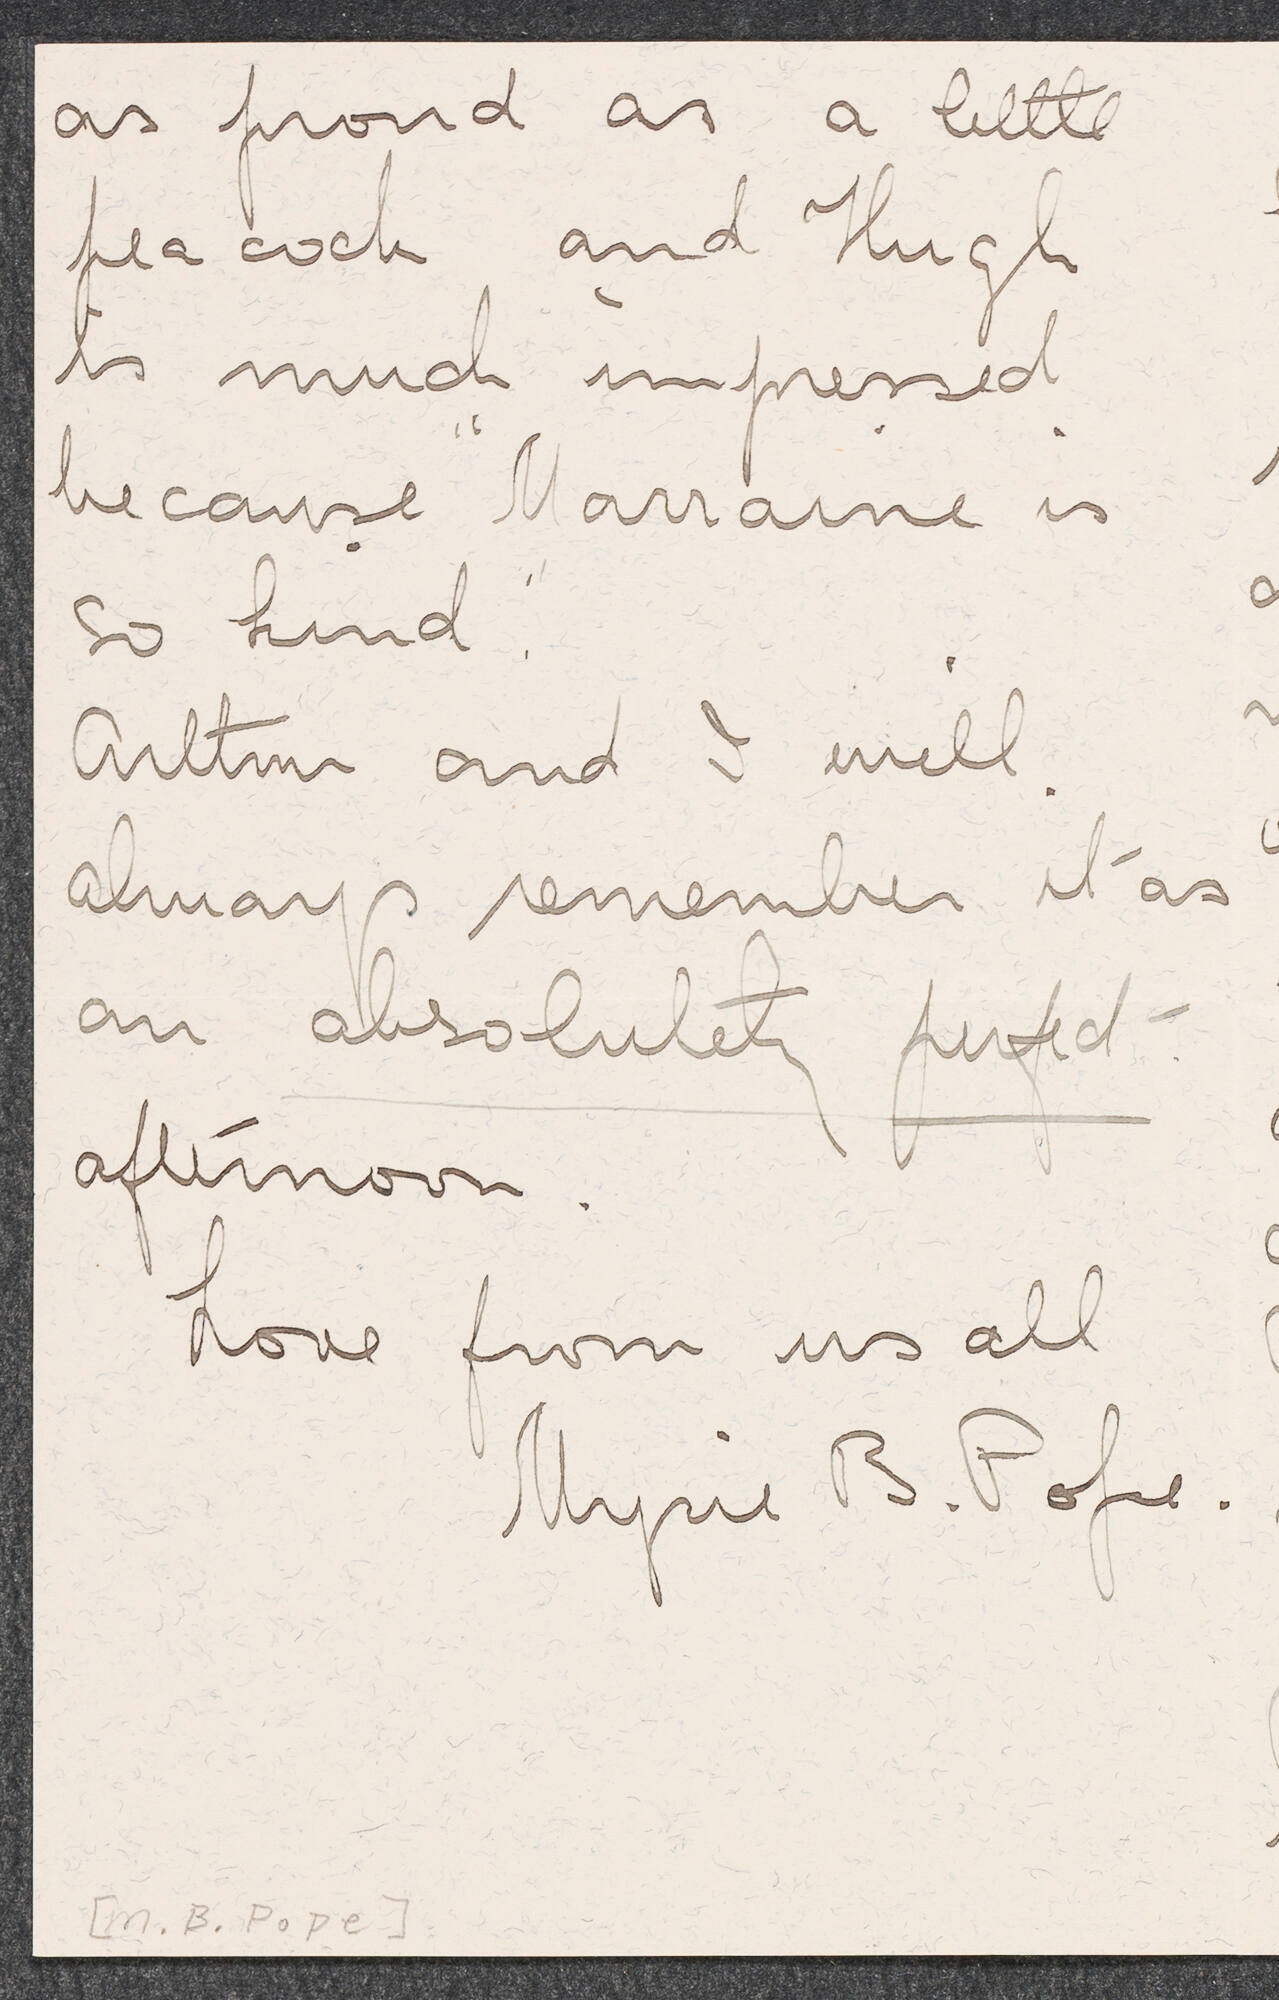 as proud as a little
peacock and Hugh
is much impressed
because "Marraine is
so kind".
Arthur and I will
always remember it as
an absolutely perfect
afternoon.
Love from us all
Mysie B. Pope.
[M. B. Pope]